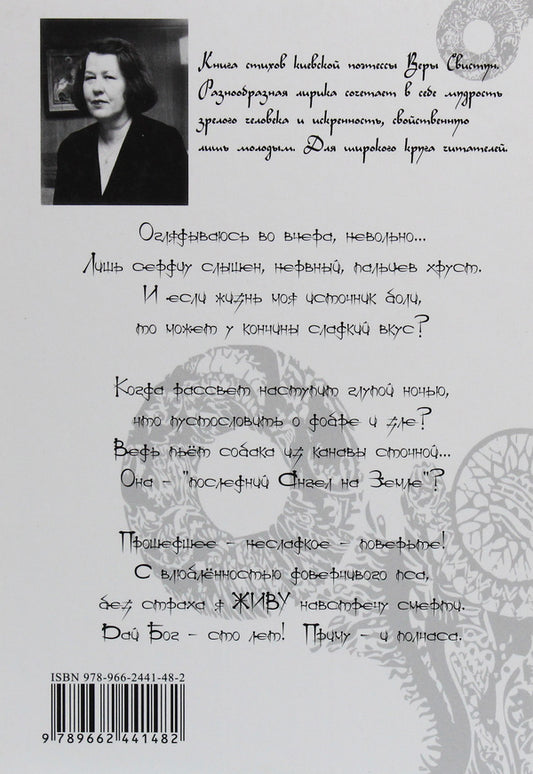 Книга стихов киевской поэтессы Веры Свистун.
Разнообразная лирика сочетает в себе мудрость
зрелого человека и искренность, свойственную
лишь молодым. Для широкого круга читателей.
Оглядываюсь во вчера, невольно...
Лишь сердцу слышен, нервный, пальцев хруст.
И если жизнь моя источник боли,
то может у кончины сладкий вкус?
Когда рассвет наступит глупой ночью,
что пустословить о добре и зле?
Ведь пьёт собака из канавы сточной...
Она - "последний Ангел на Земле"?
Прошедшее - несладкое - поверьте!
С влюблённостью доверчивого пса,
без страха я ЖИВУ навстречу смерти.
Дай Бог - сто лет! Приму - и полчаса.
ISBN 978-966-2441-48-2
9 789662 441482